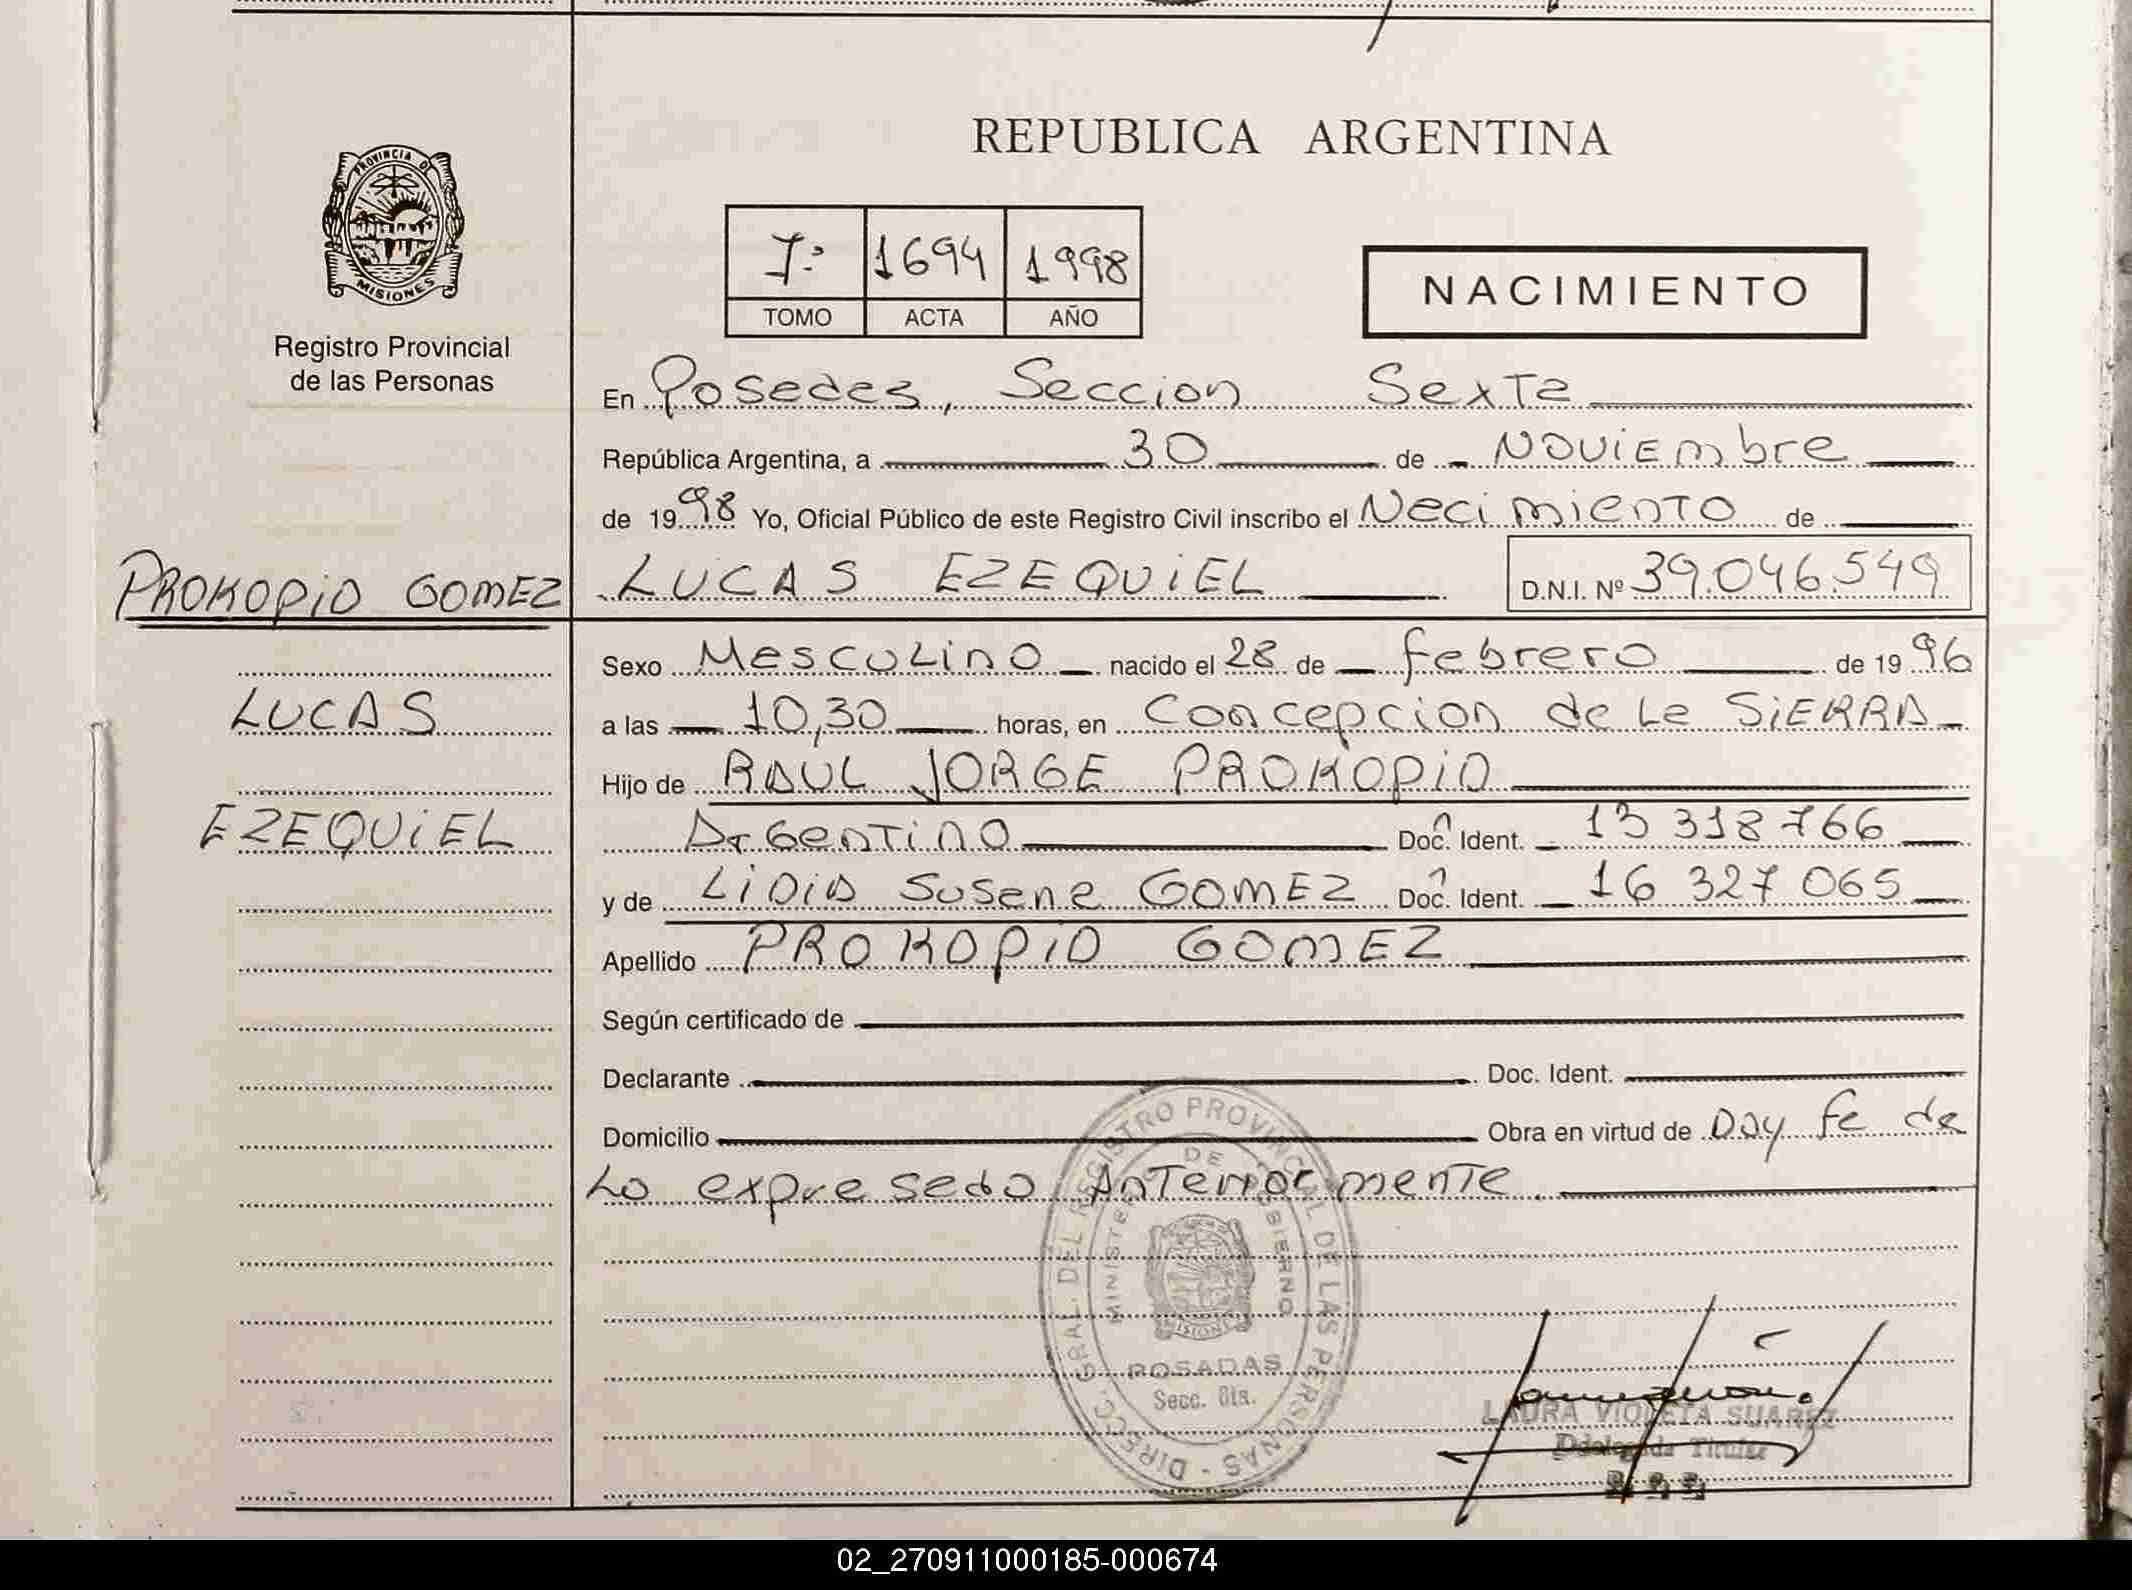 REPUBLICA ARGENTINA
PROVINCIA DE
MISIONES
Registro Provincial
de las Personas
7º 1694 1998
TOMO ACTA AÑO
NACIMIENTO
En Posadas, Seccion Sexta
República Argentina, a 30 de NOVIEmbre
de 1998 Yo, Oficial Público de este Registro Civil inscribo el Nacimiento de
PROKOPIO GOMEZ
LUCAS EZEQUIEL D.N.I. Nº 39.046.549
LUCAS
EZEQUIEL
Sexo Masculino nacido el 28 de febrero de 1996
a las 10,30 horas, en Concepcion de La SIERRA
Hijo de RAUL JORGE PROKOPIO
Argentino Doc. Ident. 13 318 766
y de LIDIA Susana GOMEZ Doc. Ident. 16 327 065
Apellido PROKOPIO GOMEZ
Según certificado de
Declarante Doc. Ident.
Domicilio Obra en virtud de Doy fe de
Lo expresado Anteriormente.
DIRECC. GRAL. DEL REGISTRO PROVINCIAL DE LAS PERSONAS -
MINISTERIO DE GOBIERNO
MISIONES
POSADAS
Secc. 6ta.
LAURA VIOLETA SUAREZ
Delegada Titular
02_270911000185-000674